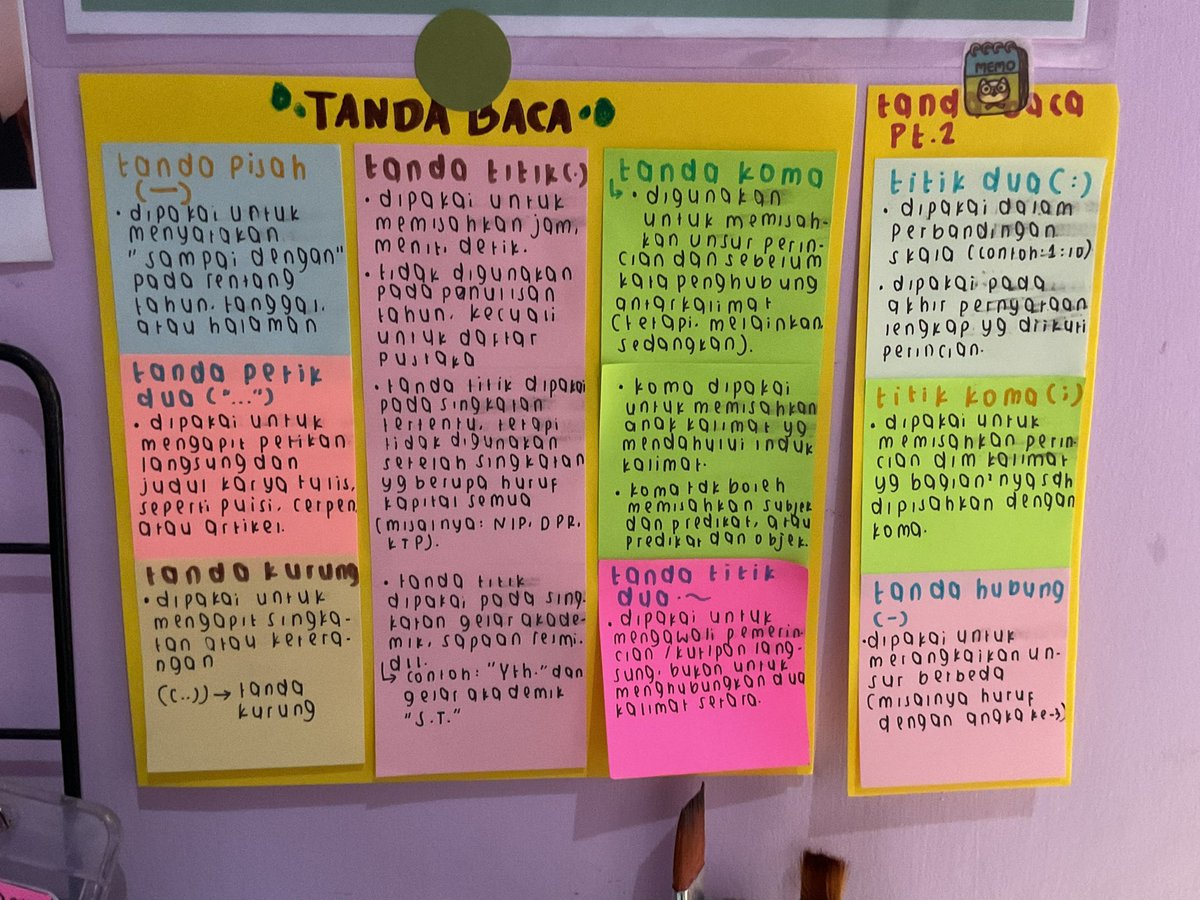 TANDA BACA
tanda pisah
(—)
• dipakai untuk
menyatakan
"sampai dengan"
pada rentang
tahun, tanggal,
atau halaman
tanda petik
dua ("...")
• dipakai untuk
mengapit petikan
langsung dan
judul karya tulis,
seperti puisi, cerpen,
atau artikel.
tanda kurung
• dipakai untuk
mengapit singka-
tan atau ketera-
ngan
((...)) → tanda
kurung
tanda titik (.)
• dipakai untuk
memisahkan jam,
menit, detik.
• tidak digunakan
pada panulisan
tahun, kecuali
untuk daftar
pustaka
• tanda titik dipakai
pada singkatan
tertentu, tetapi
tidak digunakan
setelah singkatan
yg berupa huruf
kapital semua
(misalnya: NIP, DPR,
KTP).
• tanda titik
dipakai pada sing-
katan gelar akade-
mik, sapaan resmi,
dll.
↳ contoh: "Yth." dan
gelar akademik
"S.T."
tanda koma
↳ • digunakan
untuk memisah-
kan unsur perin-
cian dan sebelum
kata penghubung
antarkalimat
(tetapi, melainkan,
sedangkan).
• koma dipakai
untuk memisahkan
anak kalimat yg
mendahului induk
kalimat.
• koma tak boleh
memisahkan subjek
dan predikat, atau
predikat dan objek.
tanda titik
dua .~
• dipakai untuk
mengawali pemerin-
cian / kutipan lang-
sung, bukan untuk
menghubungkan dua
kalimat setara.
MEMO
tanda baca
Pt.2
titik dua (:)
• dipakai dalam
perbandingan
skala (contoh=1:10)
• dipakai pada
akhir pernyataan
lengkap yg diikuti
perincian.
titik koma (;)
• dipakai untuk
memisahkan perin-
cian dlm kalimat
yg bagian²nya sdh
dipisahkan dengan
koma.
tanda hubung
(-)
• dipakai untuk
merangkaikan un-
sur berbeda
(misalnya huruf
dengan angka ke-3)